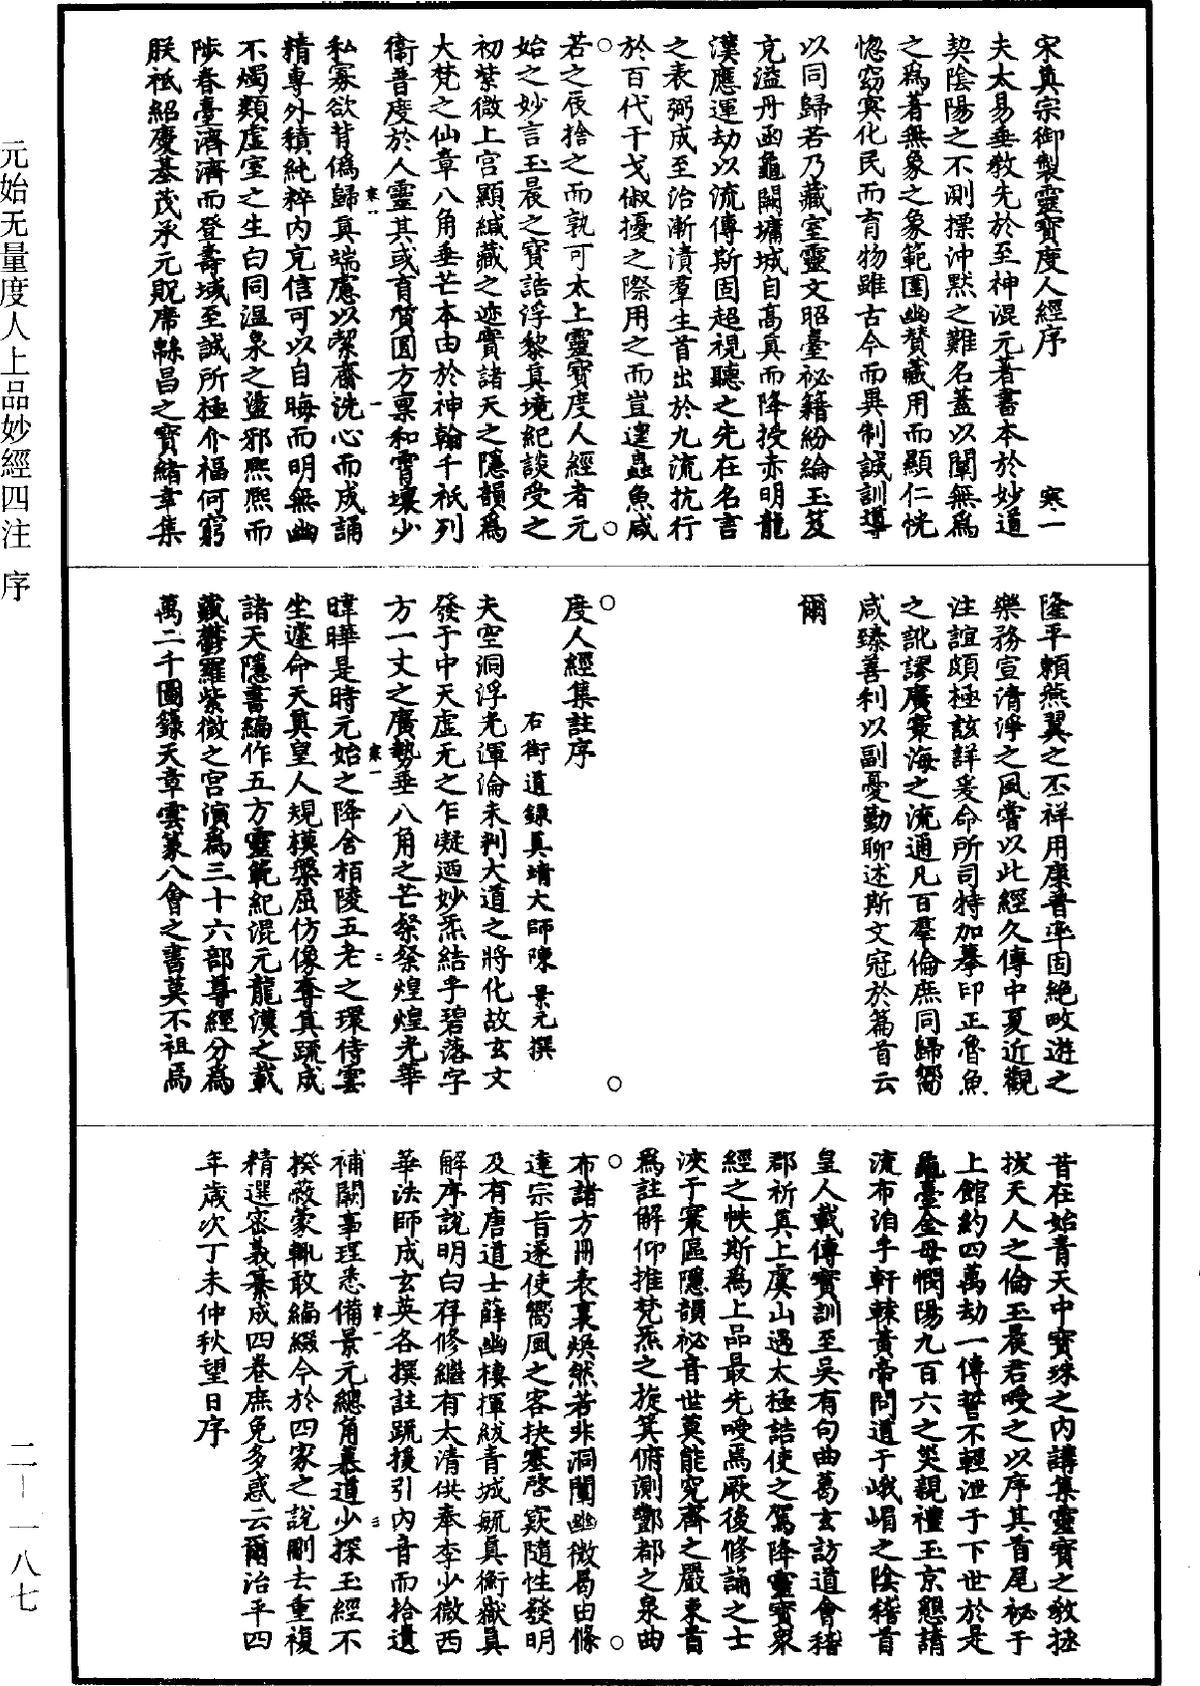 宋真宗御製靈寶度人經序　寒一
夫太易垂教先於至神混元著書本於妙道
契陰陽之不測摽沖默之難名蓋以闡無為
之為著無象之象範圍幽賛藏用而顯仁恍
惚窈冥化民而育物雖古今而異制誠訓導
以同歸若乃藏室靈文昭臺祕籍紛綸玉笈
充溢丹函龜闕墉城自高真而降授赤明龍
漢應運劫以流傳斯固超視聽之先在名言
之表弼成至治漸漬羣生首出於九流抗行
於百代干戈俶擾之際用之而豈逮蟲魚咸
若之辰捨之而孰可太上靈寶度人經者元
始之妙言玉晨之寶誥浮黎真境紀談受之
初紫微上宮顯緘藏之迹實諸天之隱韻為
大梵之仙章八角垂芒本由於神翰千祇列
衞普度於人靈其或有質圓方稟和霄壤少
私寡欲背偽歸真端慮以絜齋洗心而成誦
精專外積純粹內充信可以自晦而明無幽
不燭類虛室之生白同溫泉之盪邪熙熙而
陟春臺濟濟而登壽域至誠所極介福何窮
朕祗紹慶基茂承元貺席緜昌之寶緒幸集
隆平賴燕翼之丕祥用康普率固絕畋遊之
樂務宣清淨之風嘗以此經久傳中夏近觀
注誼頗極該詳爰命所司特加摹印正魯魚
之訛謬廣寰海之流通凡百羣倫庶同歸嚮
咸臻善利以副憂勤聊述斯文冠於篇首云
爾
度人經集註序
右街道錄真靖大師陳　景元撰
夫空洞浮光渾淪未判大道之將化故玄文
發于中天虛无之乍凝迺妙炁結乎碧落字
方一丈之廣勢垂八角之芒粲粲煌煌光華
暐曄是時元始之降舍栢陵五老之環侍雲
坐遽命天真皇人規模槃屈仿像奪真疏成
諸天隱書編作五方靈範紀混元龍漢之載
藏鬱羅紫微之宮演為三十六部尊經分為
萬二千圖籙天章雲篆八會之書莫不祖焉
昔在始青天中寶珠之內講集靈寶之教拯
拔天人之倫玉晨君受之以序其首尾祕于
上館約四萬劫一傳誓不輕泄于下世於是
龜臺金母憫陽九百六之災親禮玉京懇請
流布洎乎軒轅黃帝問道于峨嵋之陰稽首
皇人載傳寶訓至吳有句曲葛玄訪道會稽
郡祈真上虞山遇太極誥使之駕降靈寶眾
經之帙斯為上品最先受焉厥後修誦之士
浹于寰區隱韻祕音世莫能究齊之嚴東首
為註解仰推梵炁之旋箕俯測酆都之泉曲
布諸方冊表裏煥然若非洞闡幽微曷由條
達宗旨遂使嚮風之客抉塞啓窾隨性發明
及有唐道士薛幽棲揮紱青城毓真衡嶽具
解序說明白存修繼有太清供奉李少微西
華法師成玄英各撰註疏援引內音而拾遺
補闕事理悉備景元總角慕道少探玉經不
揆蔽蒙輒敢編綴今於四家之說刪去重複
精選密義纂成四卷庶免多惑云爾治平四
年歲次丁未仲秋望日序
元始无量度人上品妙經四注　序
二－一八七